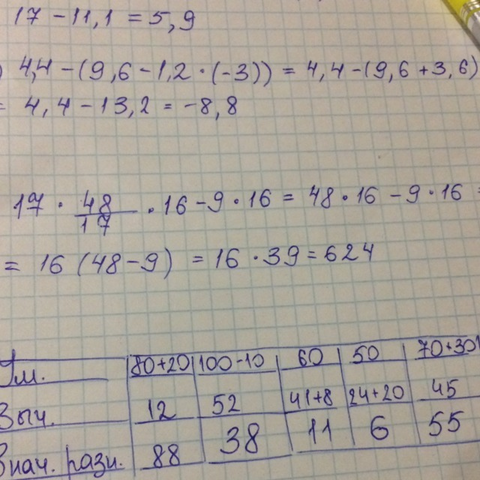 17 - 11,1 = 5,9
) 4,4 - (9,6 - 1,2 · (-3)) = 4,4 - (9,6 + 3,6)
= 4,4 - 13,2 = -8,8
17 · 48/17 · 16 - 9 · 16 = 48 · 16 - 9 · 16 =
= 16 (48 - 9) = 16 · 39 = 624
Ум. 80+20 100-10 60 50 70+30
Выч. 12 52 41+8 24+20 45
Знач. разн. 88 38 11 6 55